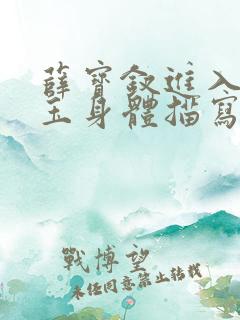 薛寶釵進入
玉身體描寫
戰博望
未经同意禁止转载